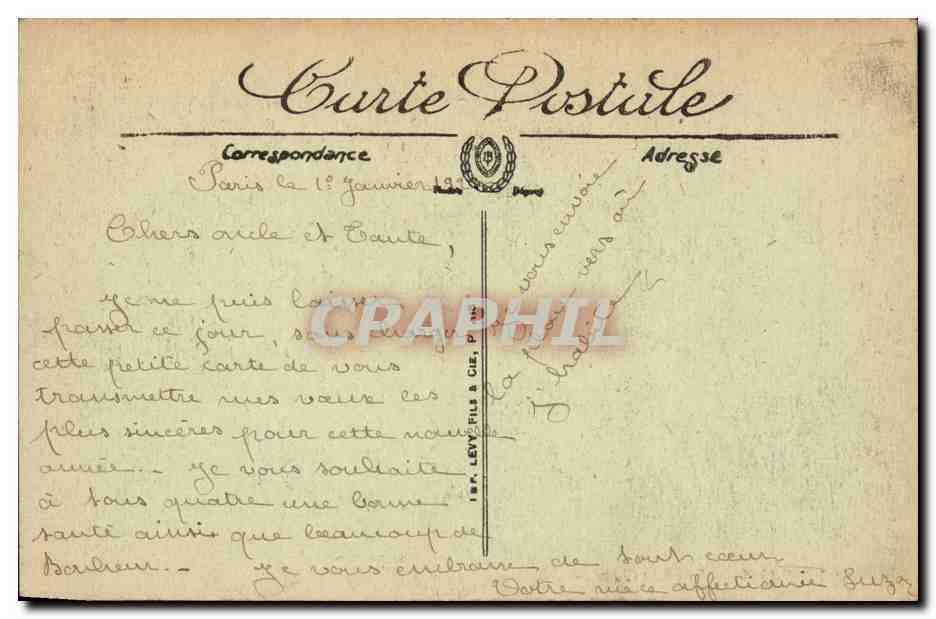 Carte Postale
Correspondance
Adresse
Paris le 1e Janvier
Chers oncle et Tante,
Je ne puis laisser
passer ce jour, sans
cette petite carte de vous
transmettre mes vœux les
plus sincères pour cette nouvelle
année.. Je vous souhaite
à tous quatre une bonne
santé ainsi que beaucoup de
Bonheur.. Je vous embrasse de tout cœur
Votre nièce affectionnée
vous envoie
vers où
j'habite
IMP. LEVY FILS & CIE, PARIS
CRAPHIL